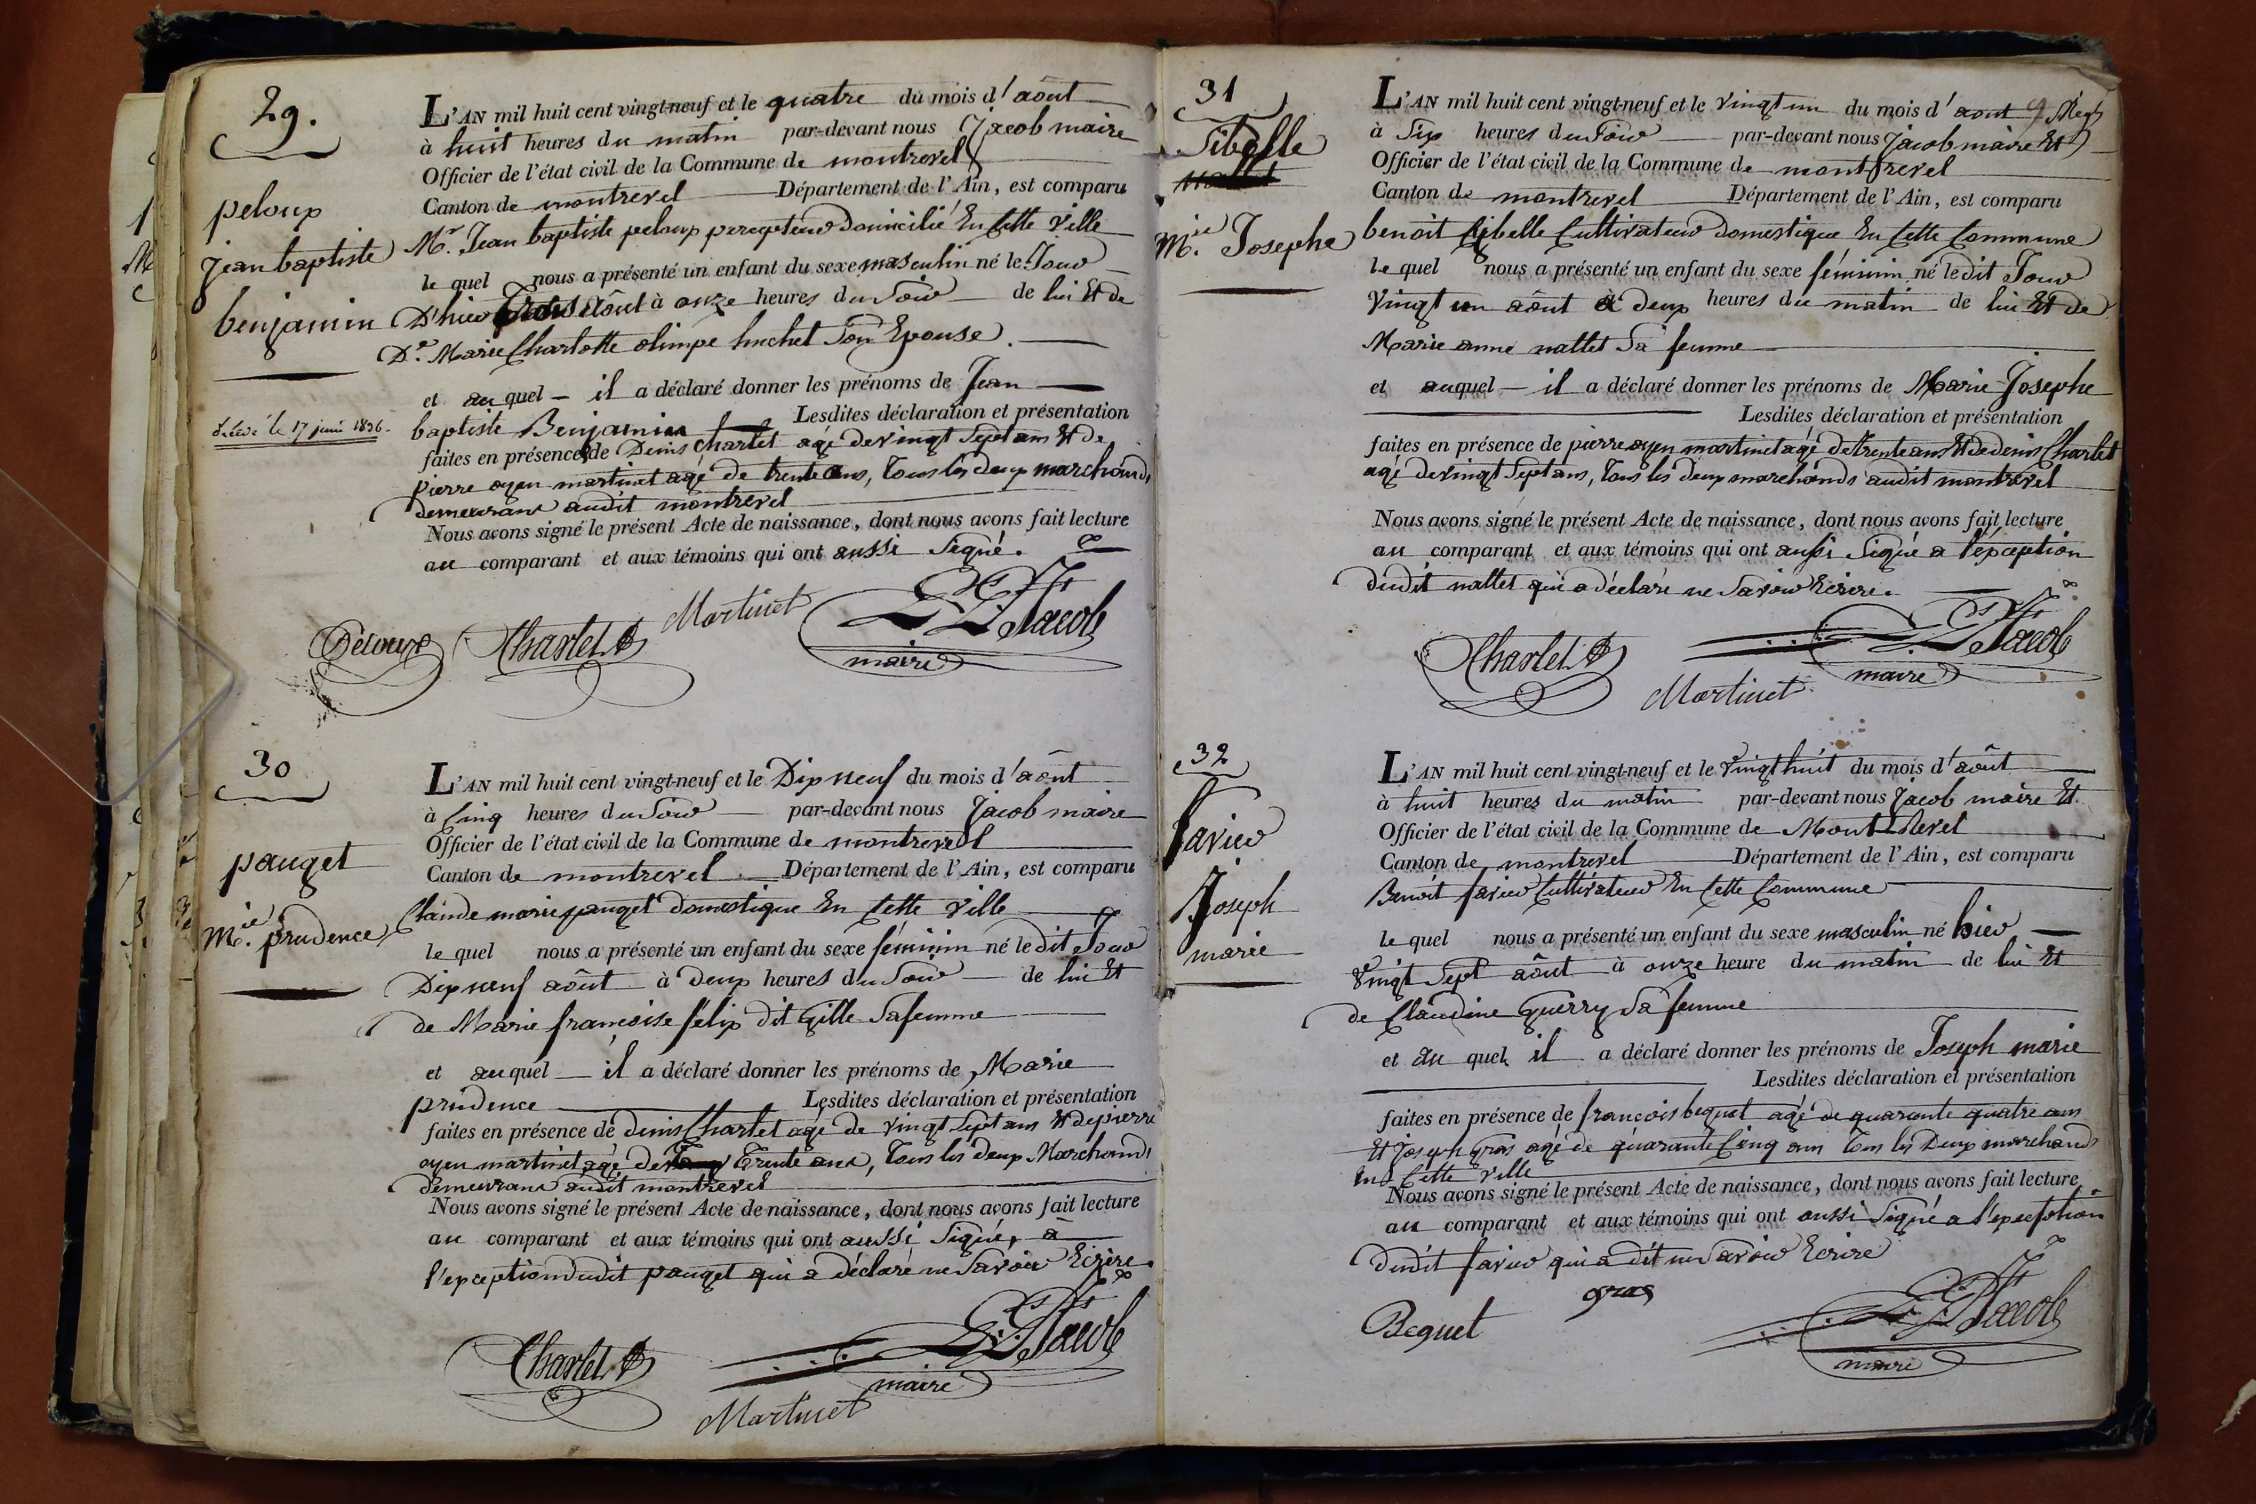 29.
peloup
jean baptiste
benjamin
décédé le 17 juin 1836.
L'AN mil huit cent vingt-neuf et le quatre du mois d'août
à huit heures du matin par-devant nous Jacob maire
Officier de l'état civil de la Commune de montrevel
Canton de montrevel Département de l'Ain, est comparu
Mr. Jean baptiste peloup percepteur domicilié En Cette ville
le quel nous a présenté un enfant du sexe masculin né le Jour
D'hier trois août à onze heures du Soir de lui Et de
De. Marie Charlotte olimpe huchet Son Epouse.
et au quel il a déclaré donner les prénoms de Jean
baptiste Benjamin Lesdites déclaration et présentation
faites en présence de Denis Charlet agé de vingt Sept ans Et de
pierre oyen martinet agé de trente ans, tous les deux marchands
demeurans audit montrevel
Nous avons signé le présent Acte de naissance, dont nous avons fait lecture
au comparant et aux témoins qui ont aussi Signé.
Peloup Charlet Martinet Jacob
maire
30
pauget
Mie. prudence
L'AN mil huit cent vingt-neuf et le Dix neuf du mois d'août
à Cinq heures du Soir par-devant nous Jacob maire
Officier de l'état civil de la Commune de montrevel
Canton de montrevel Département de l'Ain, est comparu
Claude marie pauget domestique En Cette ville
le quel nous a présenté un enfant du sexe féminin né le dit Jour
Dix neuf août à Deux heures du Soir de lui Et
de Marie françoise félix dit Gille Sa femme
et au quel il a déclaré donner les prénoms de Marie
prudence Lesdites déclaration et présentation
faites en présence de denis Charlet agé de vingt Sept ans Et de pierre
oyen martinet agé de trente ans, tous les deux Marchands
demeurans audit montrevel
Nous avons signé le présent Acte de naissance, dont nous avons fait lecture
au comparant et aux témoins qui ont aussi Signé, à
l'exception dudit pauget qui a déclaré ne Savoir Ecrire.
Charlet Martinet Jacob
maire
31
Sibelle
Mie. Josephe
L'AN mil huit cent vingt-neuf et le vingt un du mois d'aout
à Six heures du Soir par-devant nous Jacob maire Et
Officier de l'état civil de la Commune de montrevel
Canton de montrevel Département de l'Ain, est comparu
benoit Sibelle Cultivateur domestique En Cette Commune
le quel nous a présenté un enfant du sexe féminin né le dit Jour
vingt un août à deux heures du matin de lui Et de
Marie anne nallet Sa femme
et auquel il a déclaré donner les prénoms de Marie Josephe
Lesdites déclaration et présentation
faites en présence de pierre oyen martinet agé de trente ans Et de denis Charlet
agé de vingt Sept ans, tous les deux marchands audit montrevel
Nous avons signé le présent Acte de naissance, dont nous avons fait lecture
au comparant et aux témoins qui ont aussi Signé a l'éxception
dudit nallet qui a déclaré ne Savoir Ecrire.
Charlet Martinet Jacob
maire
32
favier
Joseph
marie
L'AN mil huit cent vingt-neuf et le vingt huit du mois d'août
à huit heures du matin par-devant nous Jacob maire Et
Officier de l'état civil de la Commune de Mont Revel
Canton de montrevel Département de l'Ain, est comparu
Benoit favier Cultivateur En Cette Commune
le quel nous a présenté un enfant du sexe masculin né hier
vingt Sept août à onze heure du matin de lui Et
de Claudine Guerry Sa femme
et au quel il a déclaré donner les prénoms de Joseph marie
Lesdites déclaration et présentation
faites en présence de françois bequet agé de quarante quatre ans
Et joseph gras agé de quarante Cinq ans tous les Deux marchands
En Cette ville
Nous avons signé le présent Acte de naissance, dont nous avons fait lecture
au comparant et aux témoins qui ont aussi Signé a l'exception
dudit favier qui a dit ne Savoir Ecrire
Bequet gras Jacob
maire